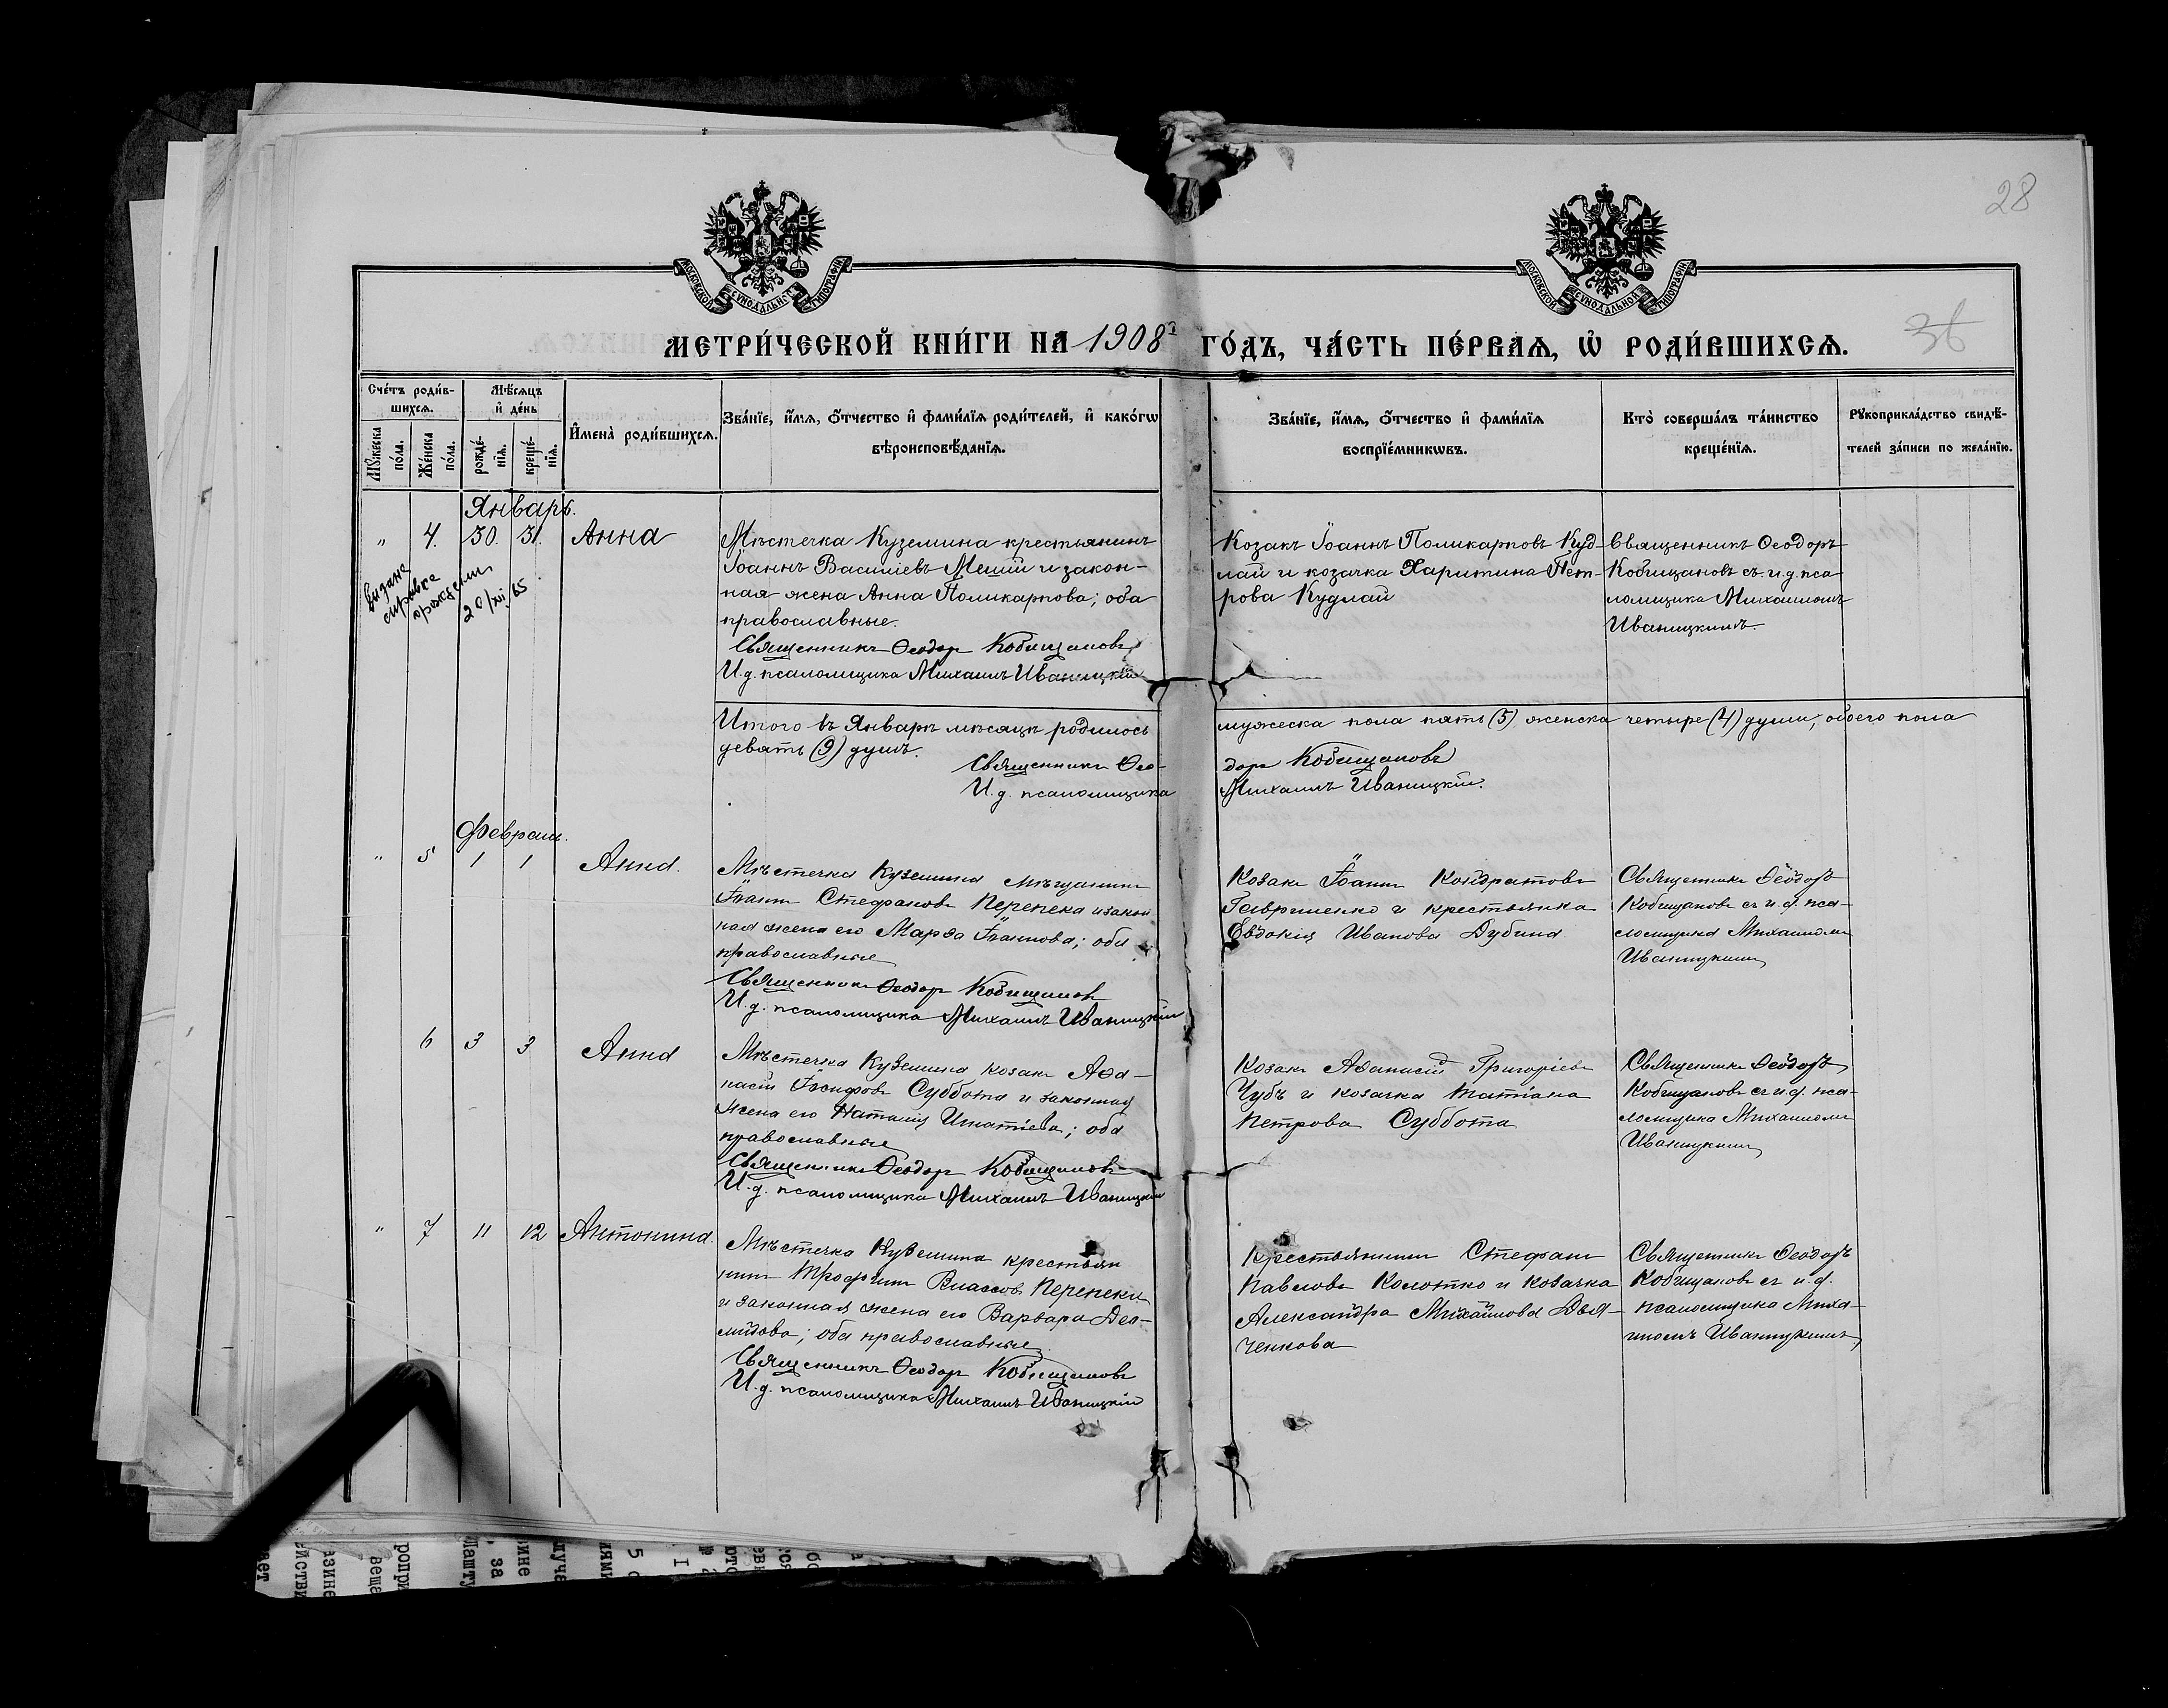 28
МОСКОВСКОЙ СѴНОДАЛЬНОЙ ТИПОГРАФІИ
МОСКОВСКОЙ СѴНОДАЛЬНОЙ ТИПОГРАФІИ
МЕТРИ́ЧЕСКОЙ КНИ́ГИ НА 1908 ГО́ДЪ, ЧА́СТЬ ПЕ́РВАѦ, Ѡ РОДИ́ВШИХСѦ.
36
Сче́тъ роди́в-
шихсѧ.
Мѣ́сѧцъ
и҆ де́нь
Мꙋ́жеска
по́ла.
Же́нска
по́ла.
рожде́-
нїѧ.
креще́-
нїѧ.
И҆мена̀ роди́вшихсѧ.
Зва́нїе, и҆́мѧ, ѻ҆́тчество и҆ фами́лїѧ роди́телей, и҆ како́гѡ
вѣроисповѣ́данїѧ.
Зва́нїе, и҆́мѧ, ѻ҆́тчество и҆ фами́лїѧ
воспрїе́мникѡвъ.
Кто̀ соверша́лъ та́инство
креще́нїѧ.
Рꙋкоприкла́дство свидѣ́-
телей за́писи по жела́нїю.
Январь.
" 4. 30. 31. Анна
Видана
справка
о рождении
20/XII 65
Мѣстечка Куземина крестьянинъ
Іоаннъ Василіевъ Меший и закон-
ная жена Анна Поликарпова; оба
православные.
Священникъ Ѳеодоръ Кобищановъ
И.д. псаломщика Михаилъ Иваницкій
Козакъ Іоаннъ Поликарповъ Куд-
лай и козачка Харитина Пет-
рова Кудлай
Священникъ Ѳеодоръ
Кобищановъ съ и.д. пса-
ломщика Михаиломъ
Иваницкимъ.
Итого въ Январѣ мѣсяцѣ родилось мужеска пола пять (5) женска четыре (4) души, обоего пола
девять (9) душъ.
Священникъ Ѳео- доръ Кобищановъ
И.д. псаломщика Михаилъ Иваницкій.
Февраль.
" 5 1 1 Анна.
Мѣстечка Куземина мѣщанинъ
Іоаннъ Стефановъ Перепека и закон
ная жена его Марѳа Іоаннова; оба
православные
Священникъ Ѳеодоръ Кобищановъ
И.д. псаломщика Михаилъ Иваницкій
Козакъ Іоаннъ Кондратовъ
Гавриленко и крестьянка
Евдокія Иванова Дубина
Священникъ Ѳеодоръ
Кобищановъ съ и.д. пса-
ломщика Михаиломъ
Иваницкимъ
6 3 3 Анна
Мѣстечка Куземина козакъ Аѳа-
насій Іосифовъ Суббота и законная
жена его Наталія Игнатіева; оба
православные
Священникъ Ѳеодоръ Кобищановъ
И.д. псаломщика Михаилъ Иваницкій
Козакъ Аѳанасій Григоріевъ
Чубъ и козачка Татіана
Петрова Суббота
Священникъ Ѳеодоръ
Кобищановъ съ и.д. пса-
ломщика Михаиломъ
Иваницкимъ
" 7 11 12 Антонина.
Мѣстечка Куземина крестьян
нинъ Трофимъ Власовъ Перепека
и законная жена его Варвара Део-
мидова; оба православные
Священникъ Ѳеодоръ Кобищановъ
И.д. псаломщика Михаилъ Иваницкій
Крестьянинъ Стефанъ
Павловъ Колотко и козачка
Александра Михаилова Дья-
ченкова
Священникъ Ѳеодоръ
Кобищановъ съ и.д.
псаломщика Миха-
иломъ Иваницкимъ